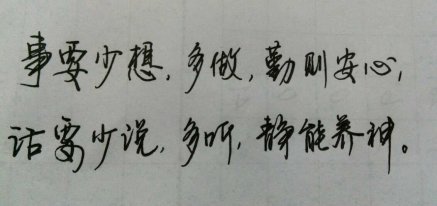 事要少想，多做，勤则安心，
话要少说，多听，静能养神。